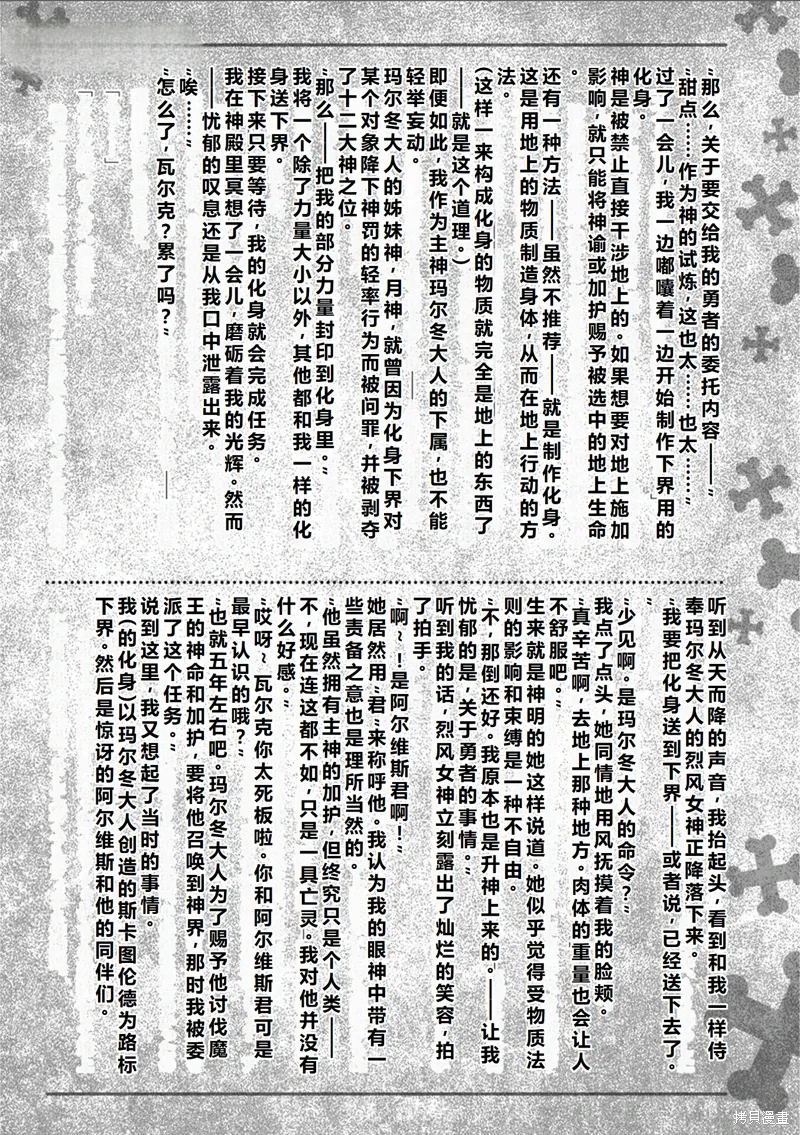 “那么，关于要交给我的勇者的委托内容——”
“甜点……作为神的试炼，这也太……也太……”
过了一会儿，我一边嘟囔着一边开始制作下界用的
化身。
神是被禁止直接干涉地上的。如果想要对地上施加
影响，就只能将神谕或加护赐予被选中的地上生命
。
还有一种方法——虽然不推荐——就是制作化身。
这是用地上的物质制造身体，从而在地上行动的方
法。
（这样一来构成化身的物质就完全是地上的东西了
——就是这个道理。）
即便如此，我作为主神玛尔冬大人的下属，也不能
轻举妄动。
玛尔冬大人的姊妹神，月神，就曾因为化身下界对
某个对象降下神罚的轻率行为而被问罪，并被剥夺
了十二大神之位。
“那么——把我的部分力量封印到化身里。”
我将一个除了力量大小以外，其他都和我一样的化
身送下界。
接下来只要等待，我的化身就会完成任务。
我在神殿里冥想了一会儿，磨砺着我的光辉。然而
——忧郁的叹息还是从我口中泄露出来。
“唉……”
“怎么了，瓦尔克？累了吗？”
听到从天而降的声音，我抬起头，看到和我一样侍
奉玛尔冬大人的烈风女神正降落下来。
“我要把化身送到下界——或者说，已经送下去了。
”
“少见啊。是玛尔冬大人的命令？”
我点了点头，她同情地用风抚摸着我的脸颊。
“真辛苦啊，去地上那种地方。肉体的重量也会让人
不舒服吧。”
生来就是神明的她这样说道。她似乎觉得受物质法
则的影响和束缚是一种不自由。
“不，那倒还好。我原本也是升神上来的。——让我
忧郁的是，关于勇者的事情。”
听到我的话，烈风女神立刻露出了灿烂的笑容，拍
了拍手。
“啊～！是阿尔维斯君啊！”
她居然用“君”来称呼他。我认为我的眼神中带有一
些责备之意也是理所当然的。
“他虽然拥有主神的加护，但终究只是个人类——
不，现在连这都不如，只是一具亡灵。我对他并没有
什么好感。”
“哎呀～瓦尔克你太死板啦。你和阿尔维斯君可是
最早认识的哦？”
“也就五年左右吧。玛尔冬大人为了赐予他讨伐魔
王的神命和加护，要将他召唤到神界，那时我被委
派了这个任务。”
说到这里，我又想起了当时的事情。
我（的化身）以玛尔冬大人创造的斯卡图伦德为路标
下界。然后是惊讶的阿尔维斯和他的同伴们。
拷貝漫畫